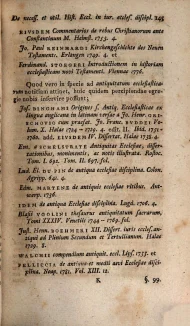 De necess. et util. Hist. Eccl. in tot. eccles. discipl. 145
EIUSDEM Commentarius de rebus Christianorum ante
Constantinum M. Helmst. 1753. 4.
Jo. Paul REINHARDS Kirchengeschichte des Neuen
Testaments. Erlangen 1749. 4.
Ferdinandi STORGERI Introductionem in historiam
ecclesiasticam novi Testament. Viennae 1776.
Quod vero in specie ad antiquitatum ecclesiastica-
rum notitiam attinet, huic quidem percipiendae egre-
gie nobis inservire possunt;
Jos. BINGHAMI Origines s. Antiq. Ecclesiasticae ex
lingua anglicana in latinam versae a Jo. Henr. GRI-
SCHOVIO cum praef. Jo. Franc. BUDDEI
1720. add. EIUSDEM IV. Dissertat. Halae 1738. 4.
Em. a SCHELSTRATE Antiquitas Ecclesiae, disser-
tationibus, monimentis, ac notis illustrata. Romae.
Tom. I. 692. Tom. II. 697. fol.
Lud. El. DU PIN de antiqua ecclesiae disciplina. Colon.
Agripp. 691. 4.
Edm. MARTENE de antiquis ecclesiae ritibus. Ant-
werp. 1736.
IDEM de antiqua Ecclesiae disciplina. Lugd. 1706. 4.
Blasii UGOLINI thesaurus antiquitatum sacrarum.
Tomi XXXIV. Venetiis 1744 - 1769. fol.
Just. Henn. BOEHMERI XII. Dissert. iuris eccles. an-
tiqui ad Plinium Secundum et Tertullianum. Halae
1729. 8.
WALCHII compendium antiquit. eccl. Lips. 1733. et
PELLICCIA de antiqua et medii aevi Ecclesiae disci-
plina. Neap. 1781. Vol. XIII. 12.
K §. 99.